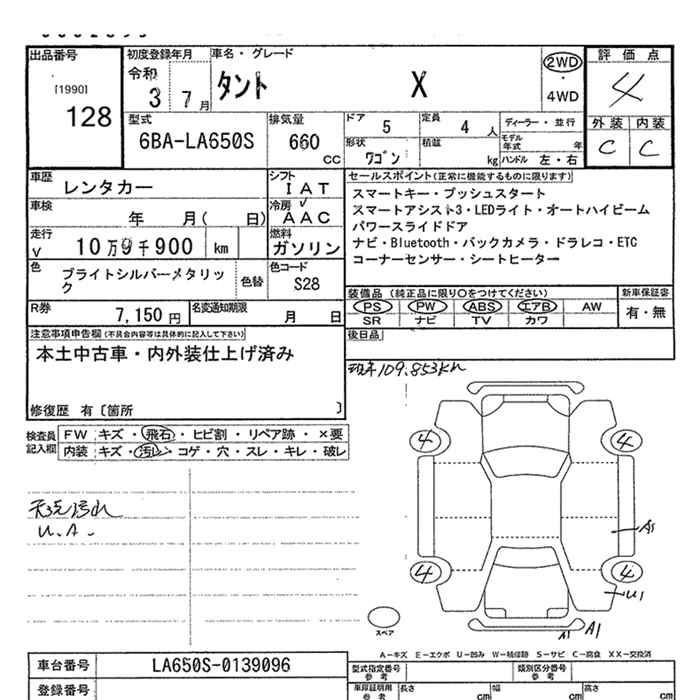 出品番号
[1990]
128
初度登録年月
令和
3 7月
車名・グレード
タント X
2WD
・
4WD
評価点
4
型式
6BA-LA650S
排気量
660
CC
ドア
5
定員
4 人
ディーラー・並行
モデル年式 年
外装 内装
C C
形状
ワゴン
積載
kg
ハンドル 左・右
車歴
レンタカー
シフト
IAT
車検
年 月( 日)
冷房
AAC
走行
V 10万9千900 km
燃料
ガソリン
色
ブライトシルバーメタリック
色替
色コード
S28
セールスポイント(正常に機能するものに限ります)
スマートキー・プッシュスタート
スマートアシスト3・LEDライト・オートハイビーム
パワースライドドア
ナビ・Bluetooth・バックカメラ・ドラレコ・ETC
コーナーセンサー・シートヒーター
R券
7,150 円
名変通知期限
月 日
装備品(純正品に限り○をつけてください)
PS PW ABS エアB AW
SR ナビ TV カワ
新車保証書
有・無
注意事項申告欄(不具合内容等は具体的に記入して下さい)
本土中古車・内外装仕上げ済み
修復歴 有〔箇所 〕
後日品
現車109.853km
検査員記入欄
FW キズ・飛石・ヒビ割・リペア跡・×要
内装 キズ・汚レ・コゲ・穴・スレ・キレ・破レ
天張汚れ
U.A.
4 4
A5
4 4
U1
スペア
A1 A1
A-キズ E-エクボ U-凹み W-補修跡 S-サビ C-腐食 XX-交換済
車台番号
LA650S-0139096
登録番号
型式指定番号
参考
類別区分番号
参考
車庫証明用
参考
長さ cm
幅 cm
高さ cm